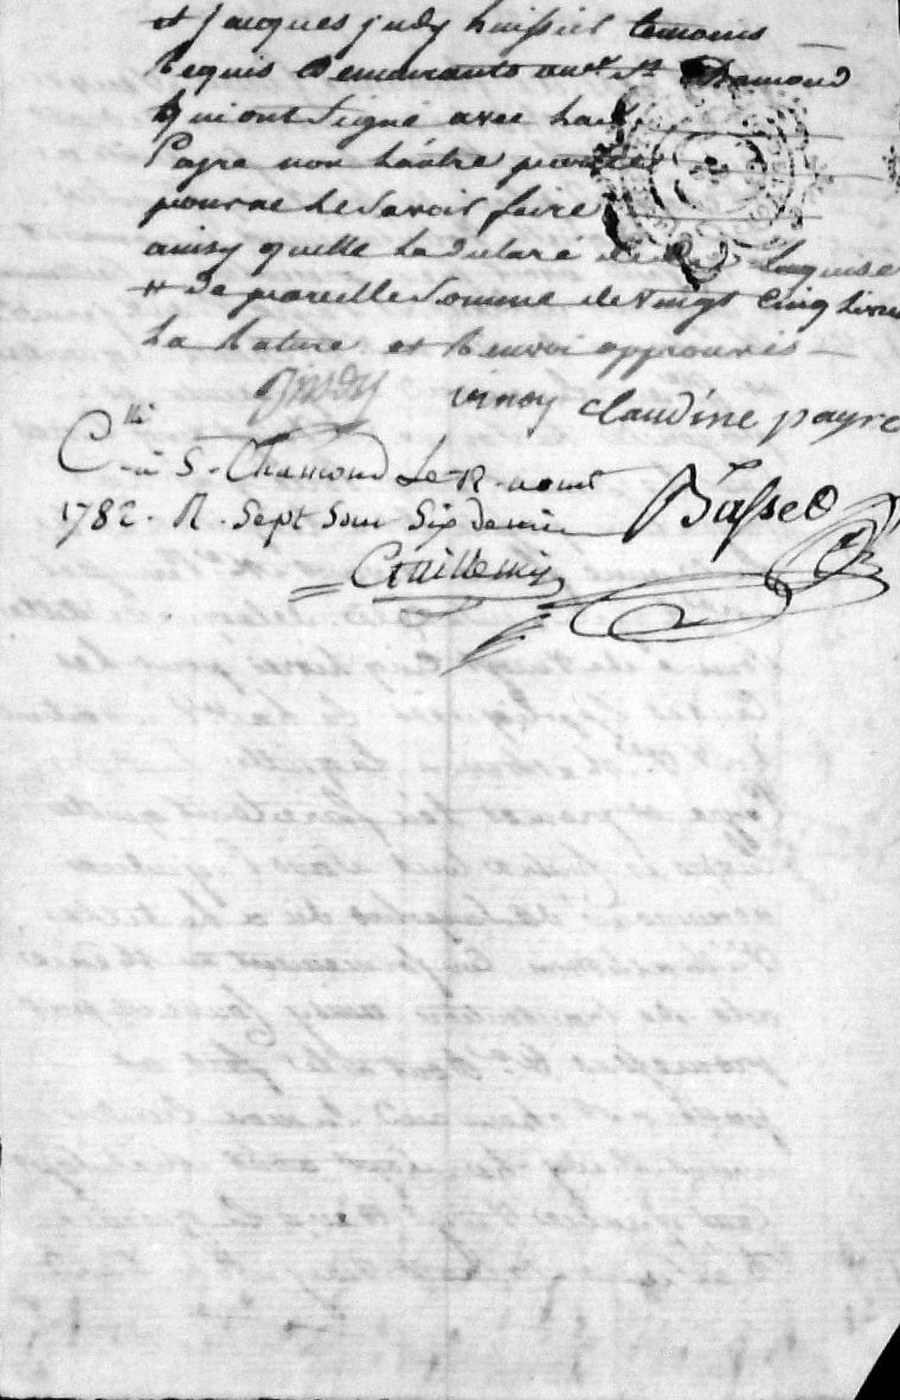 et Jacques judy huissier temoins
Requis demeurants audt St Chamond
qui ont signé avec lad.
Payre non l'autre partie
pour ne le savoir faire
ainsy quelle la declaré de ce Enquise
de pareille somme de vingt cinq livres
la rature et renvoi approuvés
Judy vinoy claudine payre
Clle à S. Chamond Le 12 novbre
1782. R. Sept sous Six deniers Basset
Guillemin